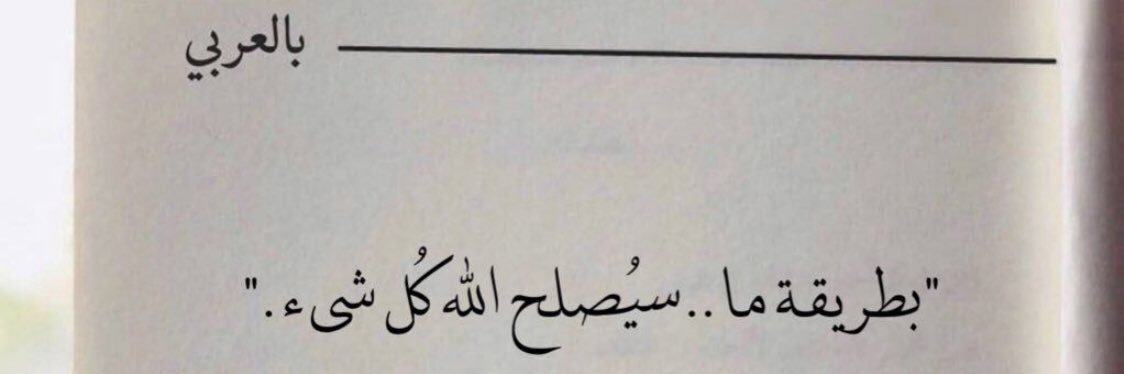 بالعربي
"بطريقة ما..سيُصلح الله كُل شىء."